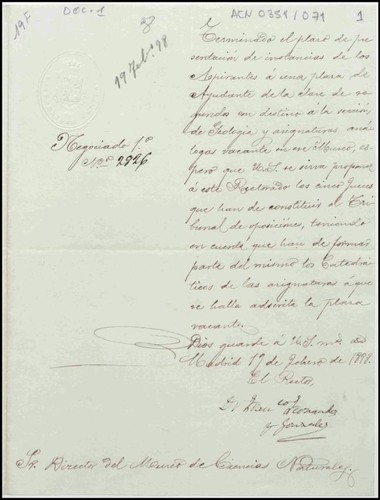 19F
DOC. 1
ACN 0351/071
1
19 Feb.º 98
Negociado 1.º
N.º 2926
Terminado el plazo de pre
sentación de instancias de los
Aspirantes á una plaza de
Ayudante de la clase de se
gundos con destino á la sección
de Geología y asignaturas aná
logas vacante en ese Museo, es
pero que U.S. se sirva proponer
á este Rectorado los cinco Jueces
que han de constituir el Tri
bunal de oposiciones, teniendo
en cuenta que han de formar
parte del mismo los Catedrá
ticos de las asignaturas á que
se halla adscrita la plaza
vacante.
Dios guarde á U.S. m.s a.s
Madrid 19 de Febrero de 1898.
El Rector,
Fernandez
y Gonzalez
Sr. Director del Museo de Ciencias Naturales.